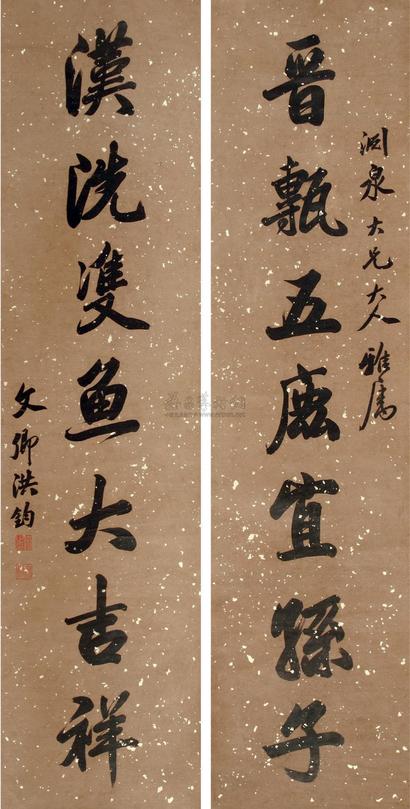 泉大兄大人雅屬
晋甎五鹿宜孫子
漢洗雙魚大吉祥
文卿洪鈞